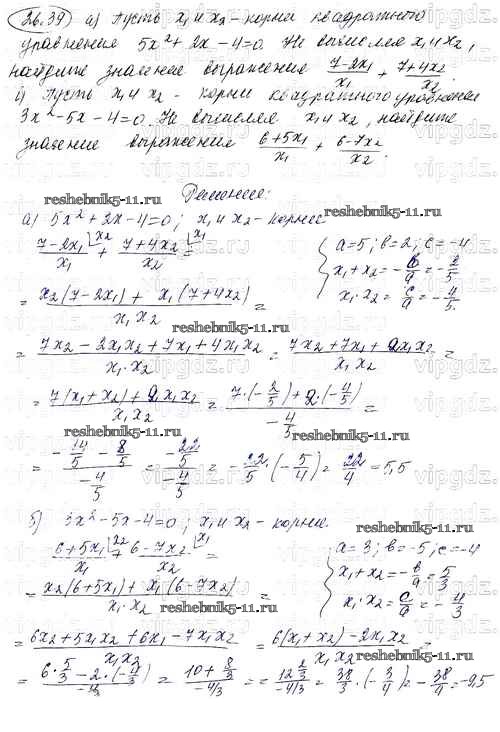 26.39) а) Пусть x₁ и x₂ - корни квадратного
уравнения 5x² + 2x - 4 = 0. Не вычисляя x₁ и x₂,
найдите значение выражения (7-2x₁)/x₁ + (7+4x₂)/x₂.
б) Пусть x₁ и x₂ - корни квадратного уравнения
3x² - 5x - 4 = 0. Не вычисляя x₁ и x₂, найдите
значение выражения (6+5x₁)/x₁ + (6-7x₂)/x₂.
Решение:
reshebnik5-11.ru
reshebnik5-11.ru
а) 5x² + 2x - 4 = 0; x₁ и x₂ - корни
(7-2x₁)/x₁ + (7+4x₂)/x₂ =
a = 5; b = 2; c = -4
x₁ + x₂ = -b/a = -2/5
x₁ · x₂ = c/a = -4/5
= (x₂(7-2x₁) + x₁(7+4x₂))/(x₁x₂) =
reshebnik5-11.ru
= (7x₂ - 2x₁x₂ + 7x₁ + 4x₁x₂)/(x₁·x₂) = (7x₂ + 7x₁ + 2x₁x₂)/(x₁x₂) =
= (7(x₁+x₂) + 2x₁x₂)/(x₁x₂) = (7·(-2/5) + 2·(-4/5))/(-4/5) =
reshebnik5-11.ru
reshebnik5-11.ru
= (-14/5 - 8/5)/(-4/5) = (-22/5)/(-4/5) = -22/5 · (-5/4) = 22/4 = 5,5
б) 3x² - 5x - 4 = 0; x₁ и x₂ - корни.
reshebnik5-11.ru
(6+5x₁)/x₁ + (6-7x₂)/x₂ =
a = 3; b = -5; c = -4
x₁ + x₂ = -b/a = 5/3
x₁ · x₂ = c/a = -4/3
= (x₂(6+5x₁) + x₁(6-7x₂))/(x₁·x₂) =
reshebnik5-11.ru
= (6x₂ + 5x₁x₂ + 6x₁ - 7x₁x₂)/(x₁x₂) = (6(x₁+x₂) - 2x₁x₂)/(x₁x₂) =
= (6·5/3 - 2·(-4/3))/(-4/3) = (10 + 8/3)/(-4/3) = = (12 2/3)/(-4/3) = 38/3 · (-3/4) = -38/4 = -9,5
reshebnik5-11.ru